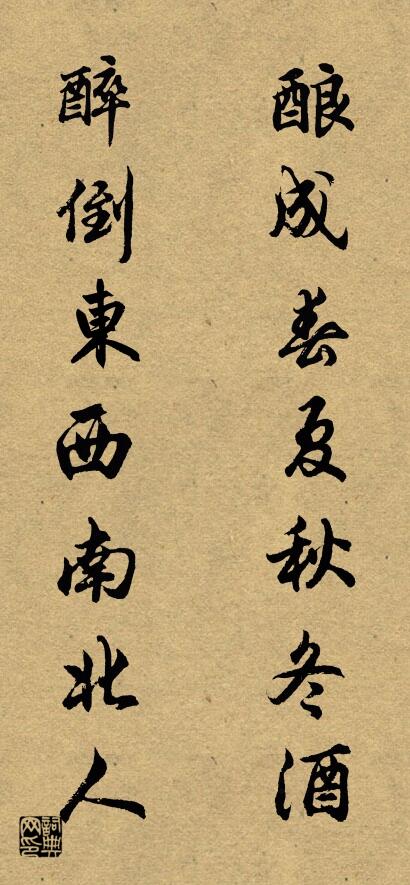 酿成春夏秋冬酒
醉倒東西南北人
詞典网印